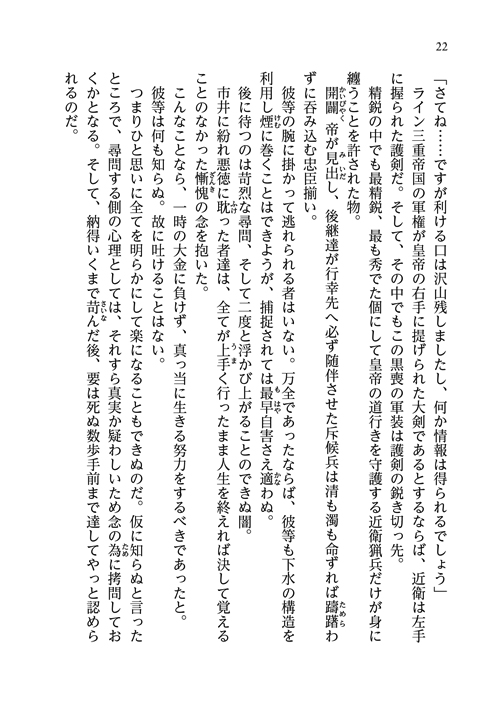 22
「さてね……ですが利ける口は沢山残しましたし、何か情報は得られるでしょう」
ライン三重帝国の軍権が皇帝の右手に提げられた大剣であるとするならば、近衛は左手
に握られた護剣だ。そして、その中でもこの黒喪の軍装は護剣の鋭き切っ先。
精鋭の中でも最精鋭、最も秀でた個にして皇帝の道行きを守護する近衛猟兵だけが身に
纏うことを許された物。
開闢帝が見出し、後継達が行幸先へ必ず随伴させた斥候兵は清も濁も命ずれば躊躇わ
ずに呑み込む忠臣揃い。
彼等の腕に掛かって逃れられる者はいない。万全であったならば、彼等も下水の構造を
利用し煙に巻くことはできようが、捕捉されては最早自害さえ適わぬ。
後に待つのは苛烈な尋問、そして二度と浮かび上がることのできぬ闇。
市井に紛れ悪徳に耽った者達は、全てが上手く行ったまま人生を終えれば決して覚える
ことのなかった慚愧の念を抱いた。
こんなことなら、一時の大金に負けず、真っ当に生きる努力をするべきであったと。
彼等は何も知らぬ。故に吐けることはない。
つまりひと思いに全てを明らかにして楽になることもできぬのだ。仮に知らぬと言った
ところで、尋問する側の心理としては、それすら真実か疑わしいため念の為に拷問してお
くかとなる。そして、納得いくまで苛んだ後、要は死ぬ数歩手前まで達してやっと認めら
れるのだ。